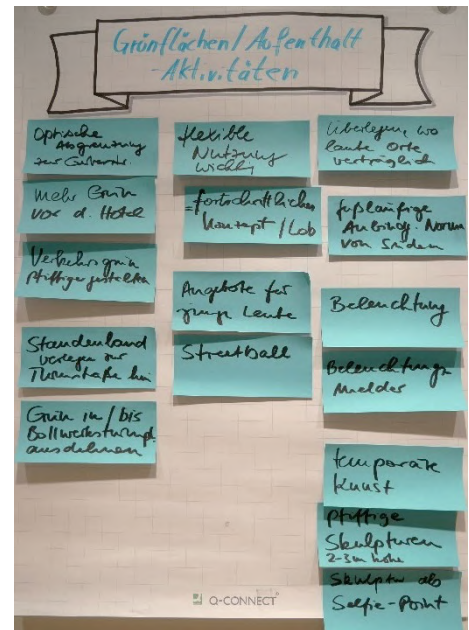 Grünflächen / Aufenthalt
-Aktivitäten
Optische
Abgrenzung
zur
mehr Grün
vor d. Hotel
Verkehrsgrün
pfiffig gestalten
verlegen zur
hin
Grün in / bis
ausdehnen
flexible
Nutzung
wichtig
= fortschrittliches
Konzept / Lob
Angebote für
junge Leute
Streetball
Überlegen, wo
laute Orte
verträglich
fußläufige
von Süden
Beleuchtung
Beleuchtungs
Melder
temporäre
Kunst
pfiffige
Skulpturen
2-3 m hohe
Skulptur als
Selfie-Point
Q-CONNECT